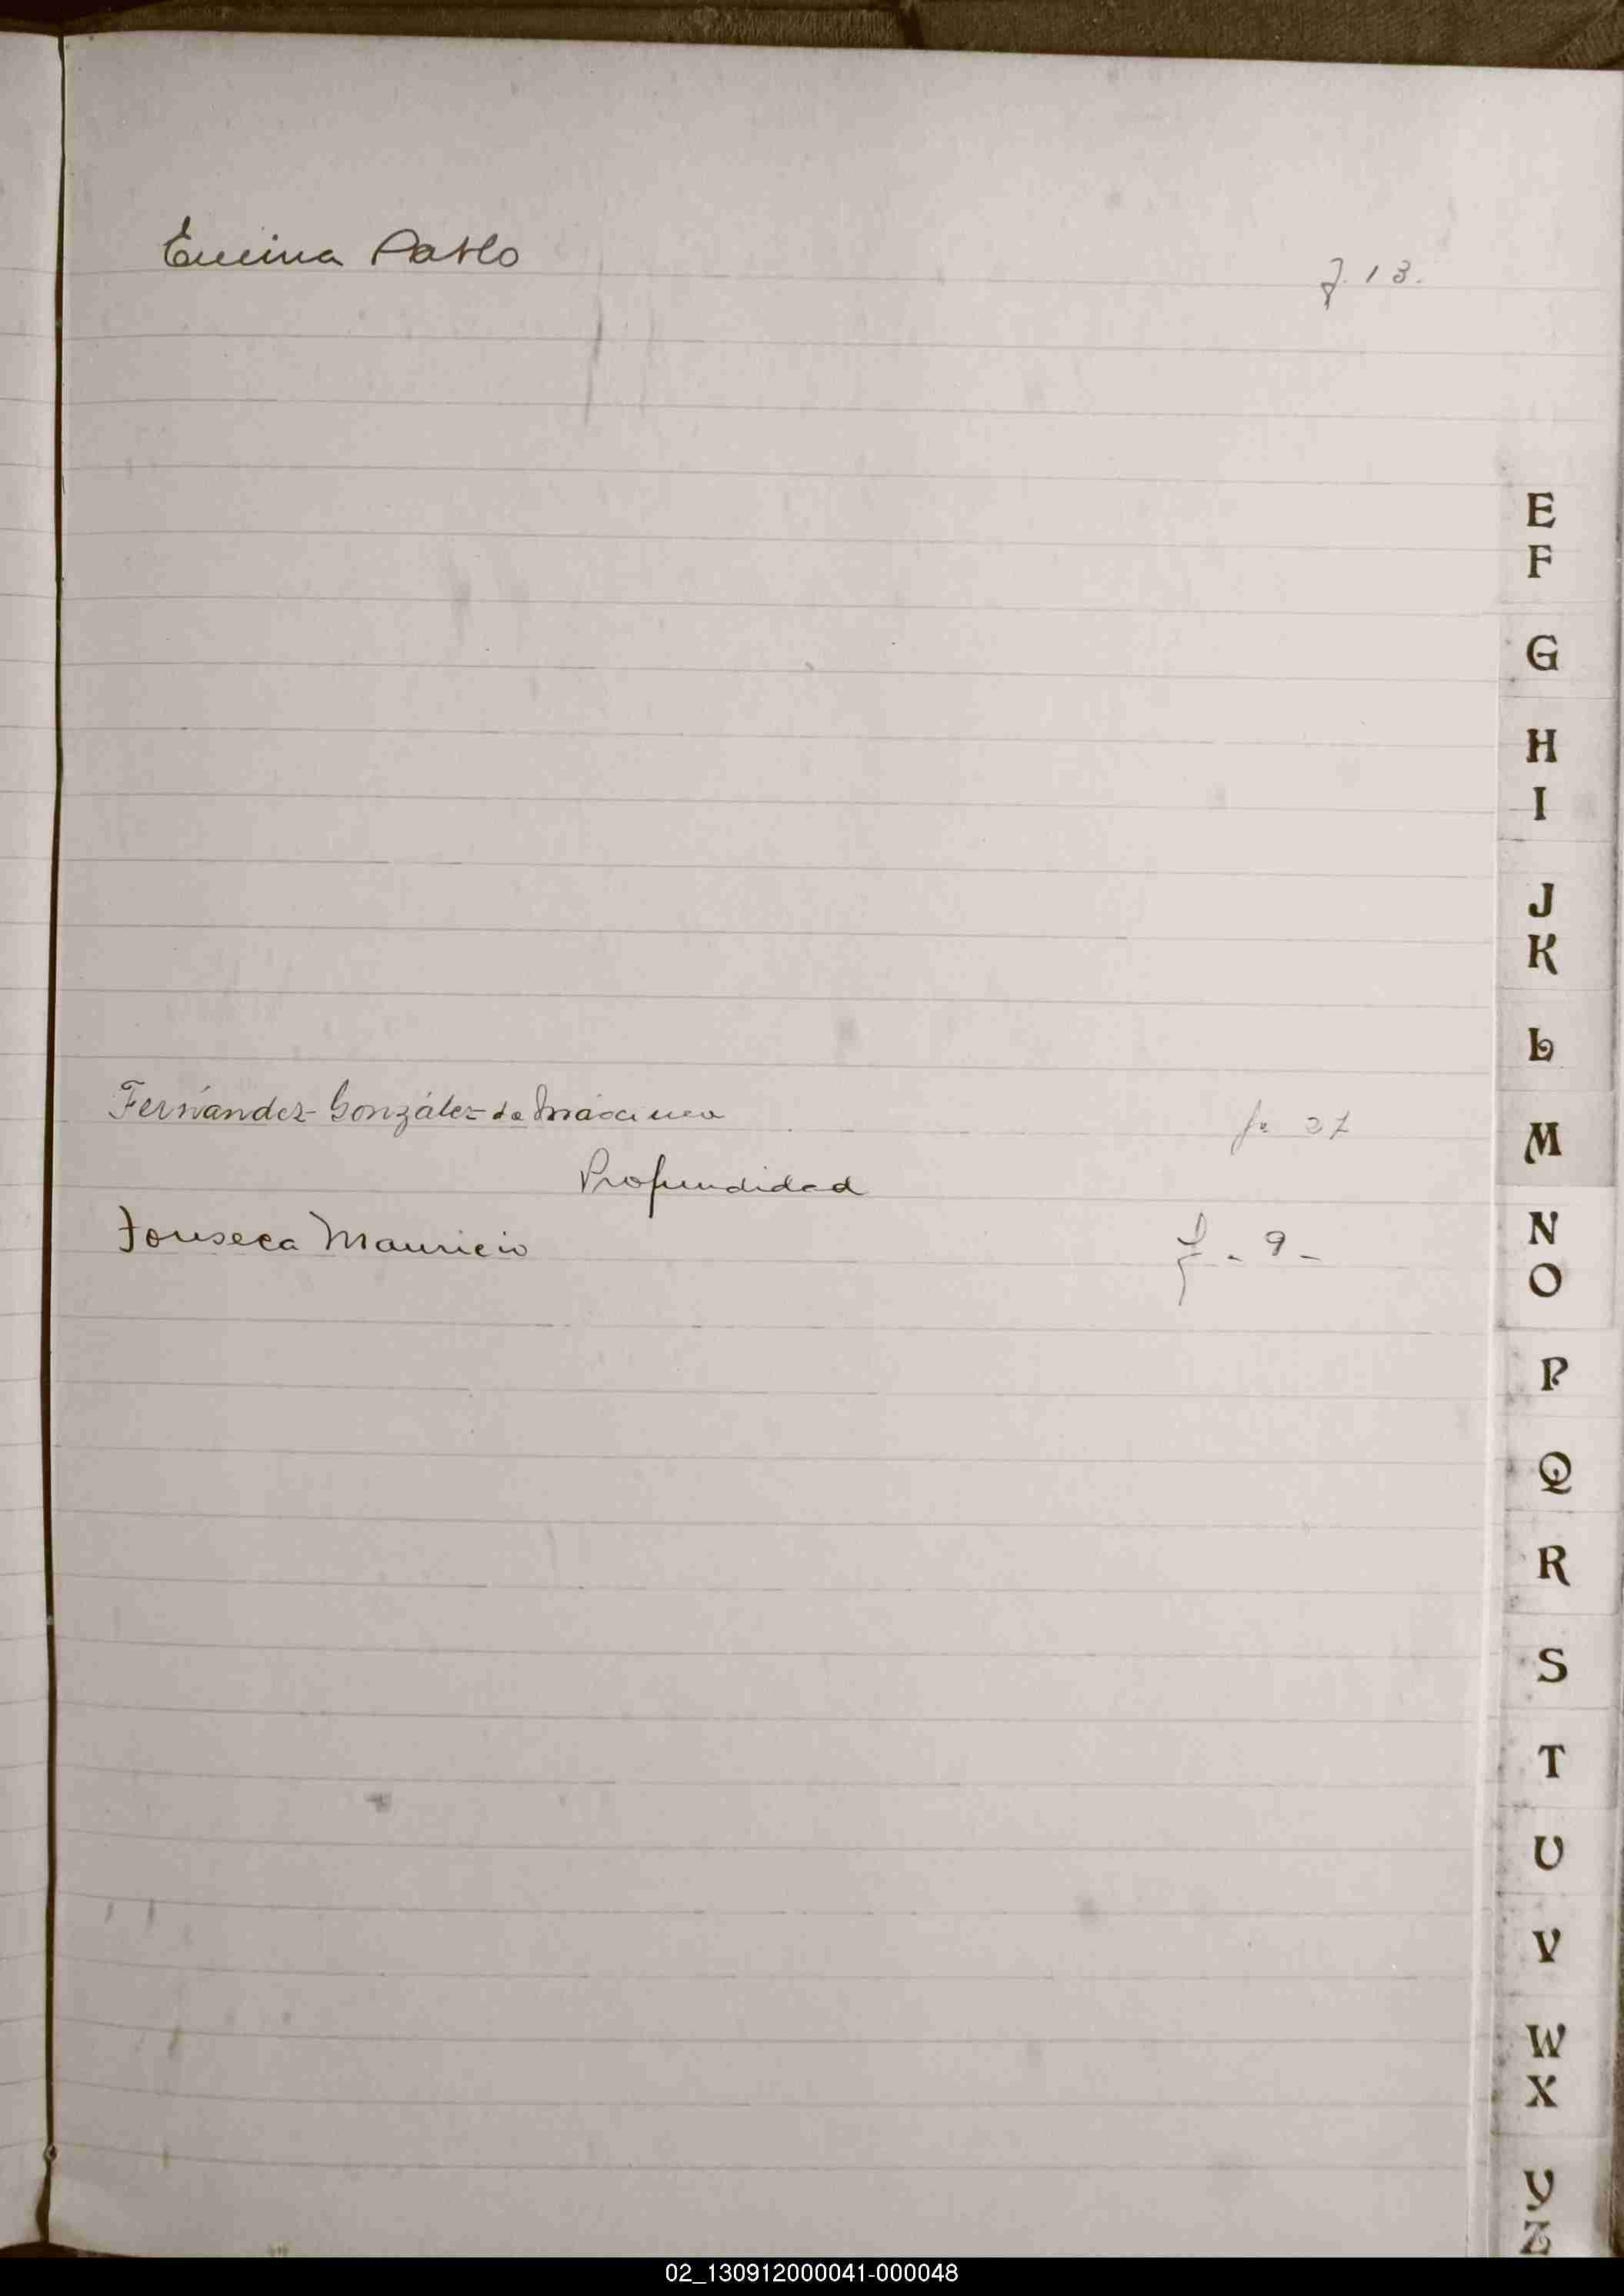 Encina Pablo f. 13.
E
F
G
H
I
J
K
L
Fernández González de
f. 27
M
Profundidad
Fonseca Mauricio f. - 9 -
N
O
P
Q
R
S
T
U
V
W
X
Y
Z
02_130912000041-000048